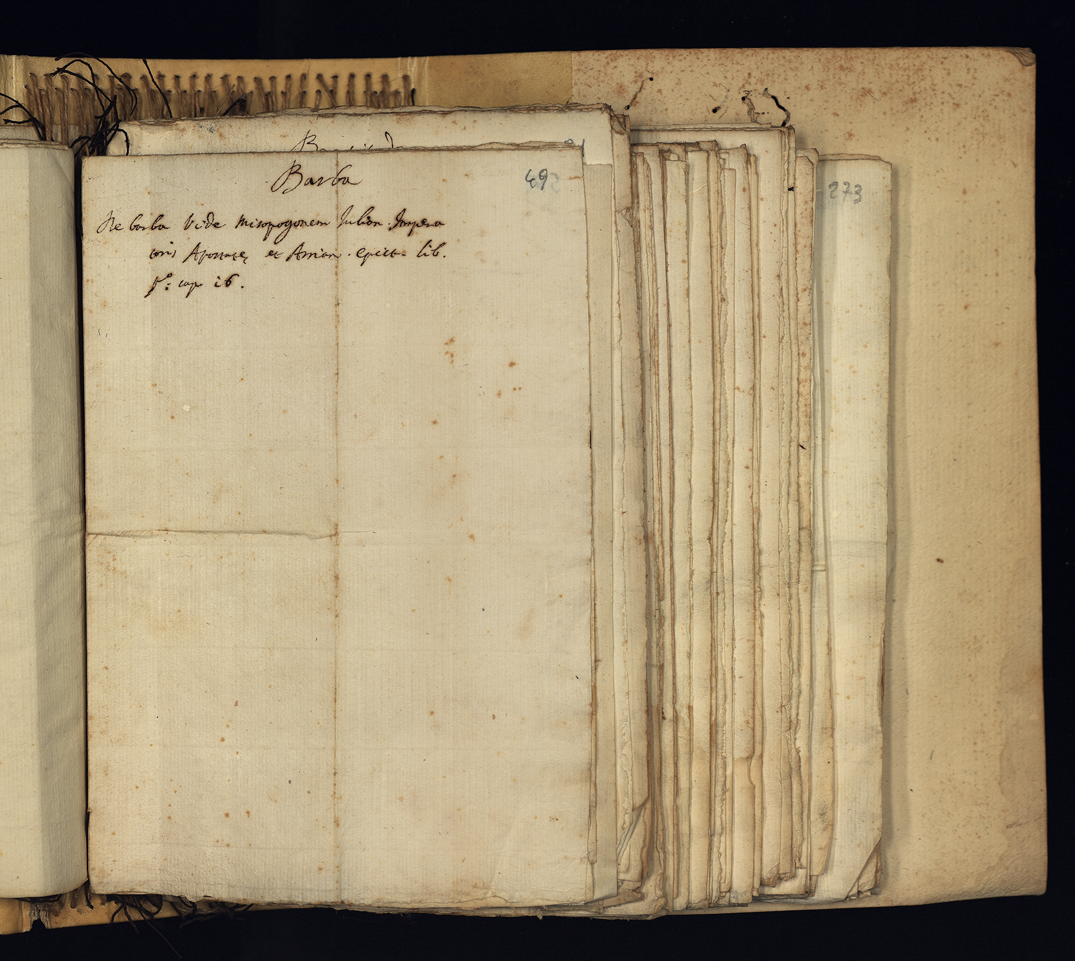 Barba
492
273
De barba Vide misopogonem Julian. Impera
toris Apostatę et Arrian. epict. lib.
p.º cap i6.